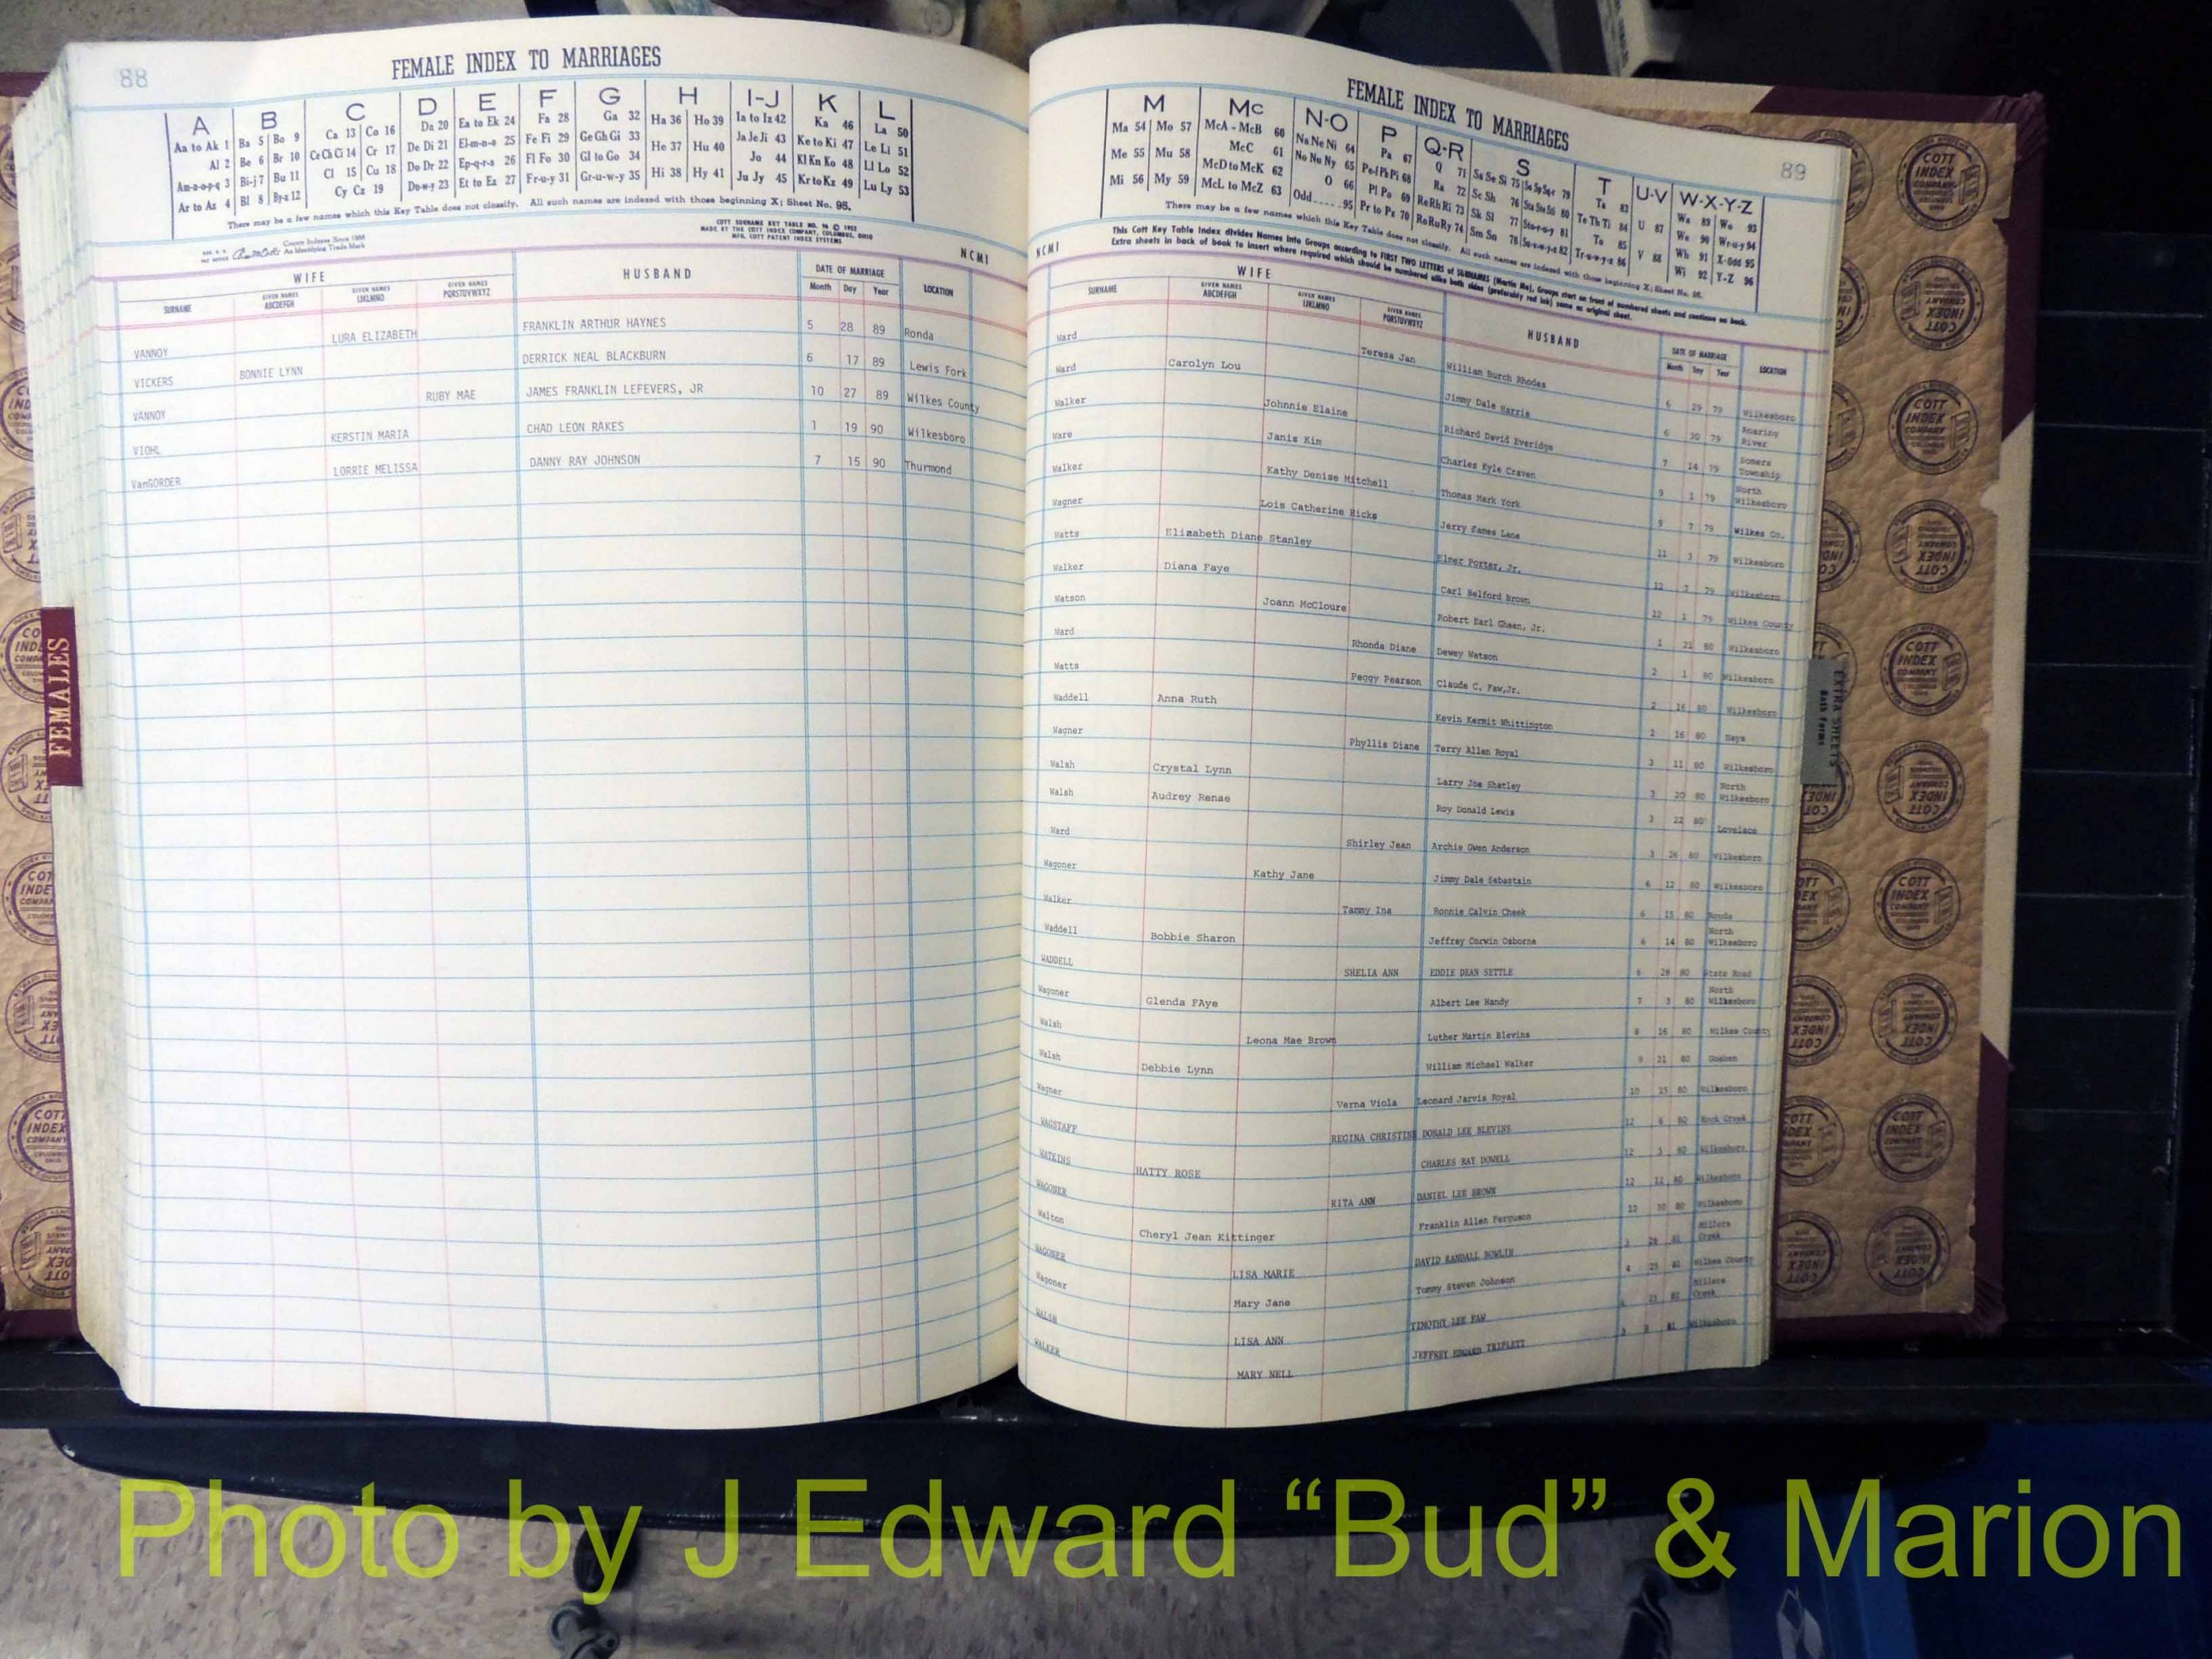 88
FEMALE INDEX TO MARRIAGES
A B C D E F G H I-J K L
Aa to Ak 1 Ba 5 Bo 9 Ca 13 Co 16 Da 20 Ea to Ek 24 Fa 28 Ga 32 Ha 36 Ho 39 Ia to Iz 42 Ka 46 La 50
Al 2 Be 6 Br 10 Ce Ch Ci 14 Cr 17 De Di 21 El-m-n-o 25 Fe Fi 29 Ge Gh Gi 33 He 37 Hu 40 Ja Je Ji 43 Ke to Ki 47 Le Li 51
Am-n-o-p-q 3 Bi-j 7 Bu 11 Cl 15 Cu 18 Do Dr 22 Ep-q-r-s 26 Fl Fo 30 Gl to Go 34 Hi 38 Hy 41 Jo 44 Kl Kn Ko 48 Ll Lo 52
Ar to Az 4 Bl 8 By-z 12 Cy Cz 19 Du-w-y 23 Et to Ez 27 Fr-u-y 31 Gr-u-w-y 35 Ju Jy 45 Kr to Kz 49 Lu Ly 53
There may be a few names which this Key Table does not classify. All such names are indexed with those beginning X; Sheet No. 95.
County Indexes Since 1888
An Identifying Trade Mark
COTT SURNAME KEY TABLE NO. 96 © 1952
MADE BY THE COTT INDEX COMPANY, COLUMBUS, OHIO
MFG. COTT PATENT INDEX SYSTEMS
NCMI
WIFE HUSBAND DATE OF MARRIAGE LOCATION
SURNAME GIVEN NAMES ABCDEFGH GIVEN NAMES IJKLMNO GIVEN NAMES PQRSTUVWXYZ Month Day Year
VANNOY LURA ELIZABETH FRANKLIN ARTHUR HAYNES 5 28 89 Ronda
VICKERS BONNIE LYNN DERRICK NEAL BLACKBURN 6 17 89 Lewis Fork
VANNOY RUBY MAE JAMES FRANKLIN LEFEVERS, JR 10 27 89 Wilkes County
VIOHL KERSTIN MARIA CHAD LEON RAKES 1 19 90 Wilkesboro
VanGORDER LORRIE MELISSA DANNY RAY JOHNSON 7 15 90 Thurmond
FEMALES
FEMALE INDEX TO MARRIAGES
89
M Mc N-O P Q-R S T U-V W-X-Y-Z
Ma 54 Mo 57 McA - McB 60 Na Ne Ni 64 Pa 67 Q 71 Sa Se Si 75 Sa Sp Sq-r 79 Ta 83 U 87 Wa 89 Wo 93
Me 55 Mu 58 McC 61 No Nu Ny 65 Pe-f Ph Pi 68 Ra 72 Sc Sh 76 Sta Ste Sti 80 Te Th Ti 84 We 90 Wr-u-y 94
McD to McK 62 O 66 Pl Po 69 Re Rh Ri 73 Sk Sl 77 Sto-r-u-y 81 To 85 V 88 Wh 91 X-Odd 95
Mi 56 My 59 McL to McZ 63 Odd 95 Pr to Pz 70 Ro Ru Ry 74 Sm Sn 78 Su-v-w-y-z 82 Tr-u-w-y-z 86 Wi 92 Y-Z 96
There may be a few names which this Key Table does not classify. All such names are indexed with those beginning X; Sheet No. 95.
This Cott Key Table Index divides Names into Groups according to FIRST TWO LETTERS of SURNAMES (Martin Ma). Groups start on front of numbered sheets and continue on back.
Extra sheets in back of book to insert where required which should be numbered alike both sides (preferably red ink) same as original sheet.
NCMI
WIFE HUSBAND DATE OF MARRIAGE LOCATION
SURNAME GIVEN NAMES ABCDEFGH GIVEN NAMES IJKLMNO GIVEN NAMES PQRSTUVWXYZ Month Day Year
Ward Teresa Jan William Burch Rhodes 6 29 79 Wilkesboro
Ward Carolyn Lou Jimmy Dale Harris 6 30 79 Roaring River
Walker Johnnie Elaine Richard David Everidge 7 14 79 Somers Township
Ware Janis Kim Charles Kyle Craven 9 1 79 North Wilkesboro
Walker Kathy Denise Mitchell Thomas Mark York 9 7 79 Wilkes Co.
Wagner Lois Catherine Hicks Jerry James Lane 11 3 79 Wilkesboro
Watts Elizabeth Diane Stanley Elmer Porter, Jr. 12 7 79 Wilkesboro
Walker Diana Faye Carl Belford Brown 12 1 79 Wilkes County
Watson Joann McCloure Robert Earl Gheen, Jr. 1 21 80 Wilkesboro
Ward Rhonda Diane Dewey Watson 2 1 80 Wilkesboro
Watts Peggy Pearson Claude C. Faw,Jr. 2 16 80 Wilkesboro
Waddell Anna Ruth Kevin Kermit Whittington 2 16 80 Hays
Wagner Phyllis Diane Terry Allen Royal 3 11 80 Wilkesboro
Walsh Crystal Lynn Larry Joe Shatley 3 20 80 North Wilkesboro
Walsh Audrey Renae Roy Donald Lewis 3 22 80 Lovelace
Ward Shirley Jean Archie Owen Anderson 3 26 80 Wilkesboro
Wagoner Kathy Jane Jimmy Dale Sebastain 6 12 80 Wilkesboro
Walker Tammy Ina Ronnie Calvin Cheek 6 15 80 Ronda
Waddell Bobbie Sharon Jeffrey Corwin Osborne 6 14 80 North Wilkesboro
WADDELL SHELIA ANN EDDIE DEAN SETTLE 6 28 80 State Road
Wagoner Glenda FAye Albert Lee Handy 7 3 80 North Wilkesboro
Walsh Leona Mae Brown Luther Martin Blevins 8 16 80 Wilkes County
Walsh Debbie Lynn William Michael Walker 9 21 80 Goshen
Wagner Verna Viola Leonard Jarvis Royal 10 15 80 Wilkesboro
WAGSTAFF REGINA CHRISTINE DONALD LEE BLEVINS 12 6 80 Rock Creek
WATKINS HATTY ROSE CHARLES RAY DOWELL 12 5 80 Wilkesboro
WAGONER RITA ANN DANIEL LEE BROWN 12 12 80 Wilkesboro
Walton Cheryl Jean Kittinger Franklin Allen Ferguson 12 30 80 Wilkesboro
WAGONER LISA MARIE DAVID RANDALL BOWLIN 3 28 81 Millers Creek
Wagoner Mary Jane Tommy Steven Johnson 4 25 81 Wilkes County
WALSH LISA ANN TIMOTHY LEE FAW 25 81 Millers Creek
WALKER MARY NELL JEFFREY EDWARD TRIPLETT 81 Wilkesboro
EXTRA SHEETS
Both Forms
COTT INDEX COMPANY
Photo by J Edward “Bud” & Marion